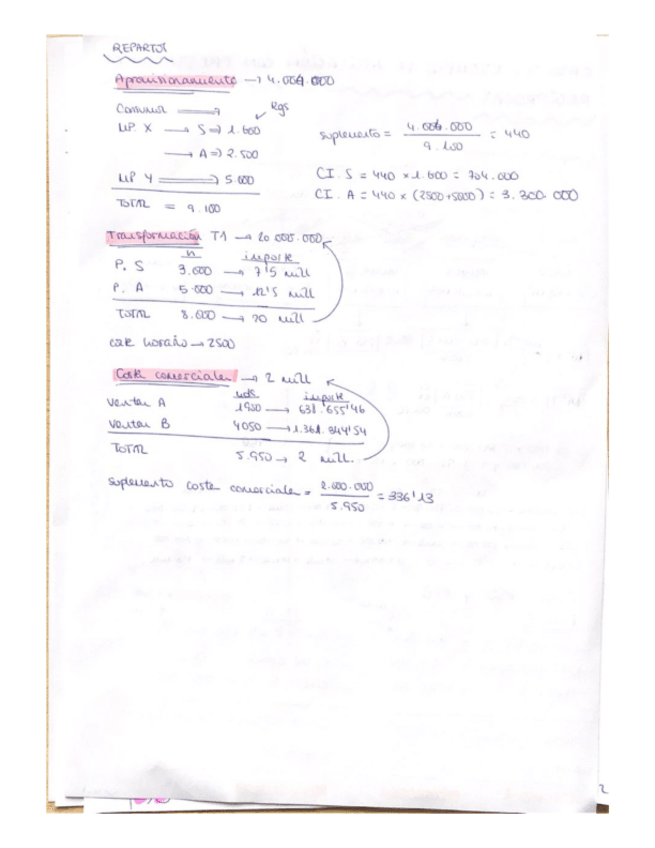 REPARTOS
Aprovisionamiento → 4.004.000
Consumos → Kgs
MP. X → S ⇒ 1.600
→ A ⇒ 2.500
MP Y → 5.000
TOTAL = 9.100
suplemento = 4.004.000 / 9.100 = 440
CI. S = 440 x 1.600 = 704.000
CI. A = 440 x (2500+5000) = 3.300.000
Transformación T1 → 20.000.000
h importe
P. S 3.000 → 7'5 mill
P. A 5.000 → 12'5 mill
TOTAL 8.000 → 20 mill
coste horario → 2500
Coste comerciales → 2 mill
uds importe
Ventas A 1900 → 638.655'46
Ventas B 4050 → 1.361.344'54
TOTAL 5.950 → 2 mill.
suplemento coste comerciales = 2.000.000 / 5.950 = 336'13
2